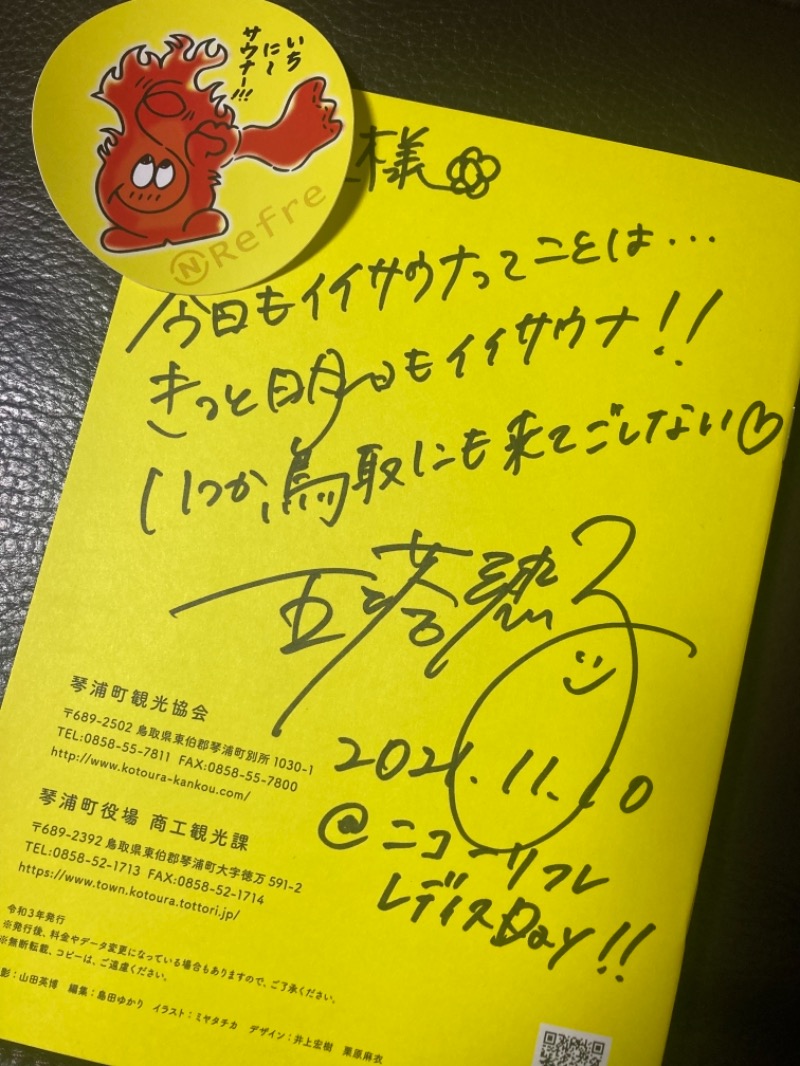 いち
に〜
サウナー!!!
N Refre
様
今日もイイサウナってことは…
きっと明日もイイサウナ!!
いつか、鳥取にも来てごしない♡
2021.11.10
@ニコーリフレ
レディスDay!!
琴浦町観光協会
〒689-2502 鳥取県東伯郡琴浦町別所 1030-1
TEL:0858-55-7811 FAX:0858-55-7800
http://www.kotoura-kankou.com/
琴浦町役場 商工観光課
〒689-2392 鳥取県東伯郡琴浦町大字徳万 591-2
TEL:0858-52-1713 FAX:0858-52-1714
https://www.town.kotoura.tottori.jp/
令和3年発行
※発行後、料金やデータ変更になっている場合もありますので、ご了承ください。
※無断転載、コピーは、ご遠慮ください。
影：山田英博 編集：島田ゆかり イラスト：ミヤタチカ デザイン：井上宏樹 栗原麻衣